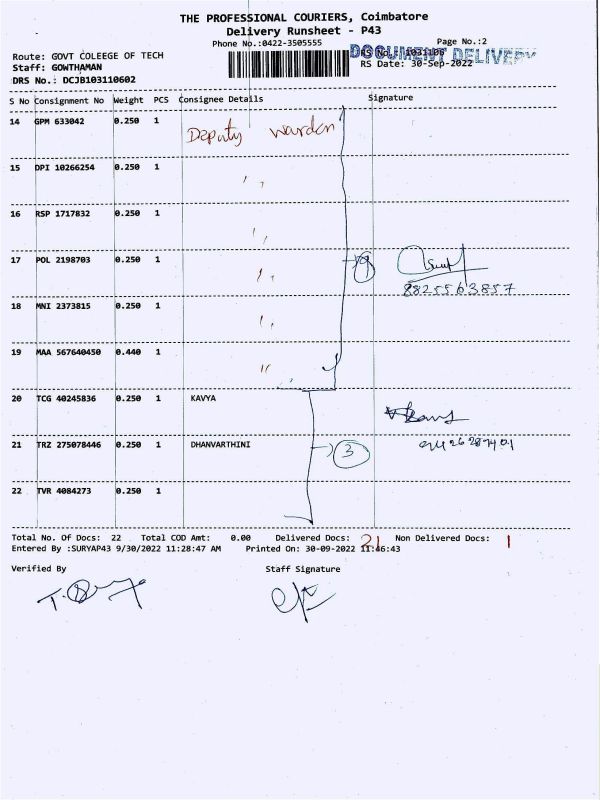 THE PROFESSIONAL COURIERS, Coimbatore
Delivery Runsheet - P43
Phone No.:0422-3505555 Page No.:2
Route: GOVT COLEEGE OF TECH DOCUMENT DELIVERY
RS No.: 1031106
Staff: GOWTHAMAN RS Date: 30-Sep-2022
DRS No.: DCJB103110602
S No Consignment No Weight PCS Consignee Details Signature
14 GPM 633042 0.250 1 Deputy warden
15 DPI 10266254 0.250 1 ,,
16 RSP 1717832 0.250 1 ,,
17 POL 2198703 0.250 1 ,, 9
8825563857
18 MNI 2373815 0.250 1 ,,
19 MAA 567640450 0.440 1 ,,
20 TCG 40245836 0.250 1 KAVYA
21 TRZ 275078446 0.250 1 DHANVARTHINI 3
22 TVR 4084273 0.250 1
Total No. Of Docs: 22 Total COD Amt: 0.00 Delivered Docs: 21 Non Delivered Docs: 1
Entered By :SURYAP43 9/30/2022 11:28:47 AM Printed On: 30-09-2022 11:46:43
Verified By Staff Signature